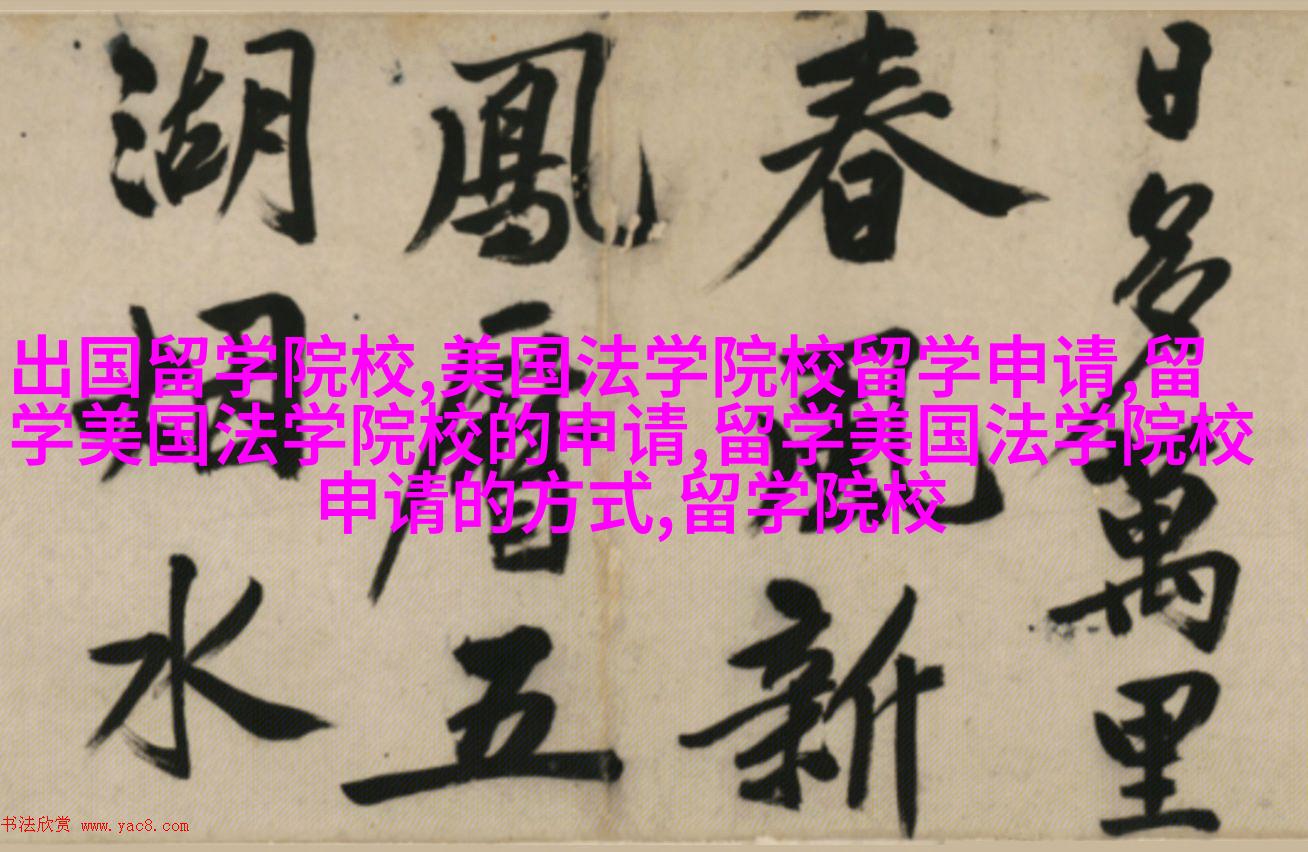 日多萬里
春風新
鳳曆五
湖烟水
出国留学院校,美国法学院校留学申请,留
学美国法学院校的申请,留学美国法学院校
申请的方式,留学院校
书法欣赏 www.yac8.com